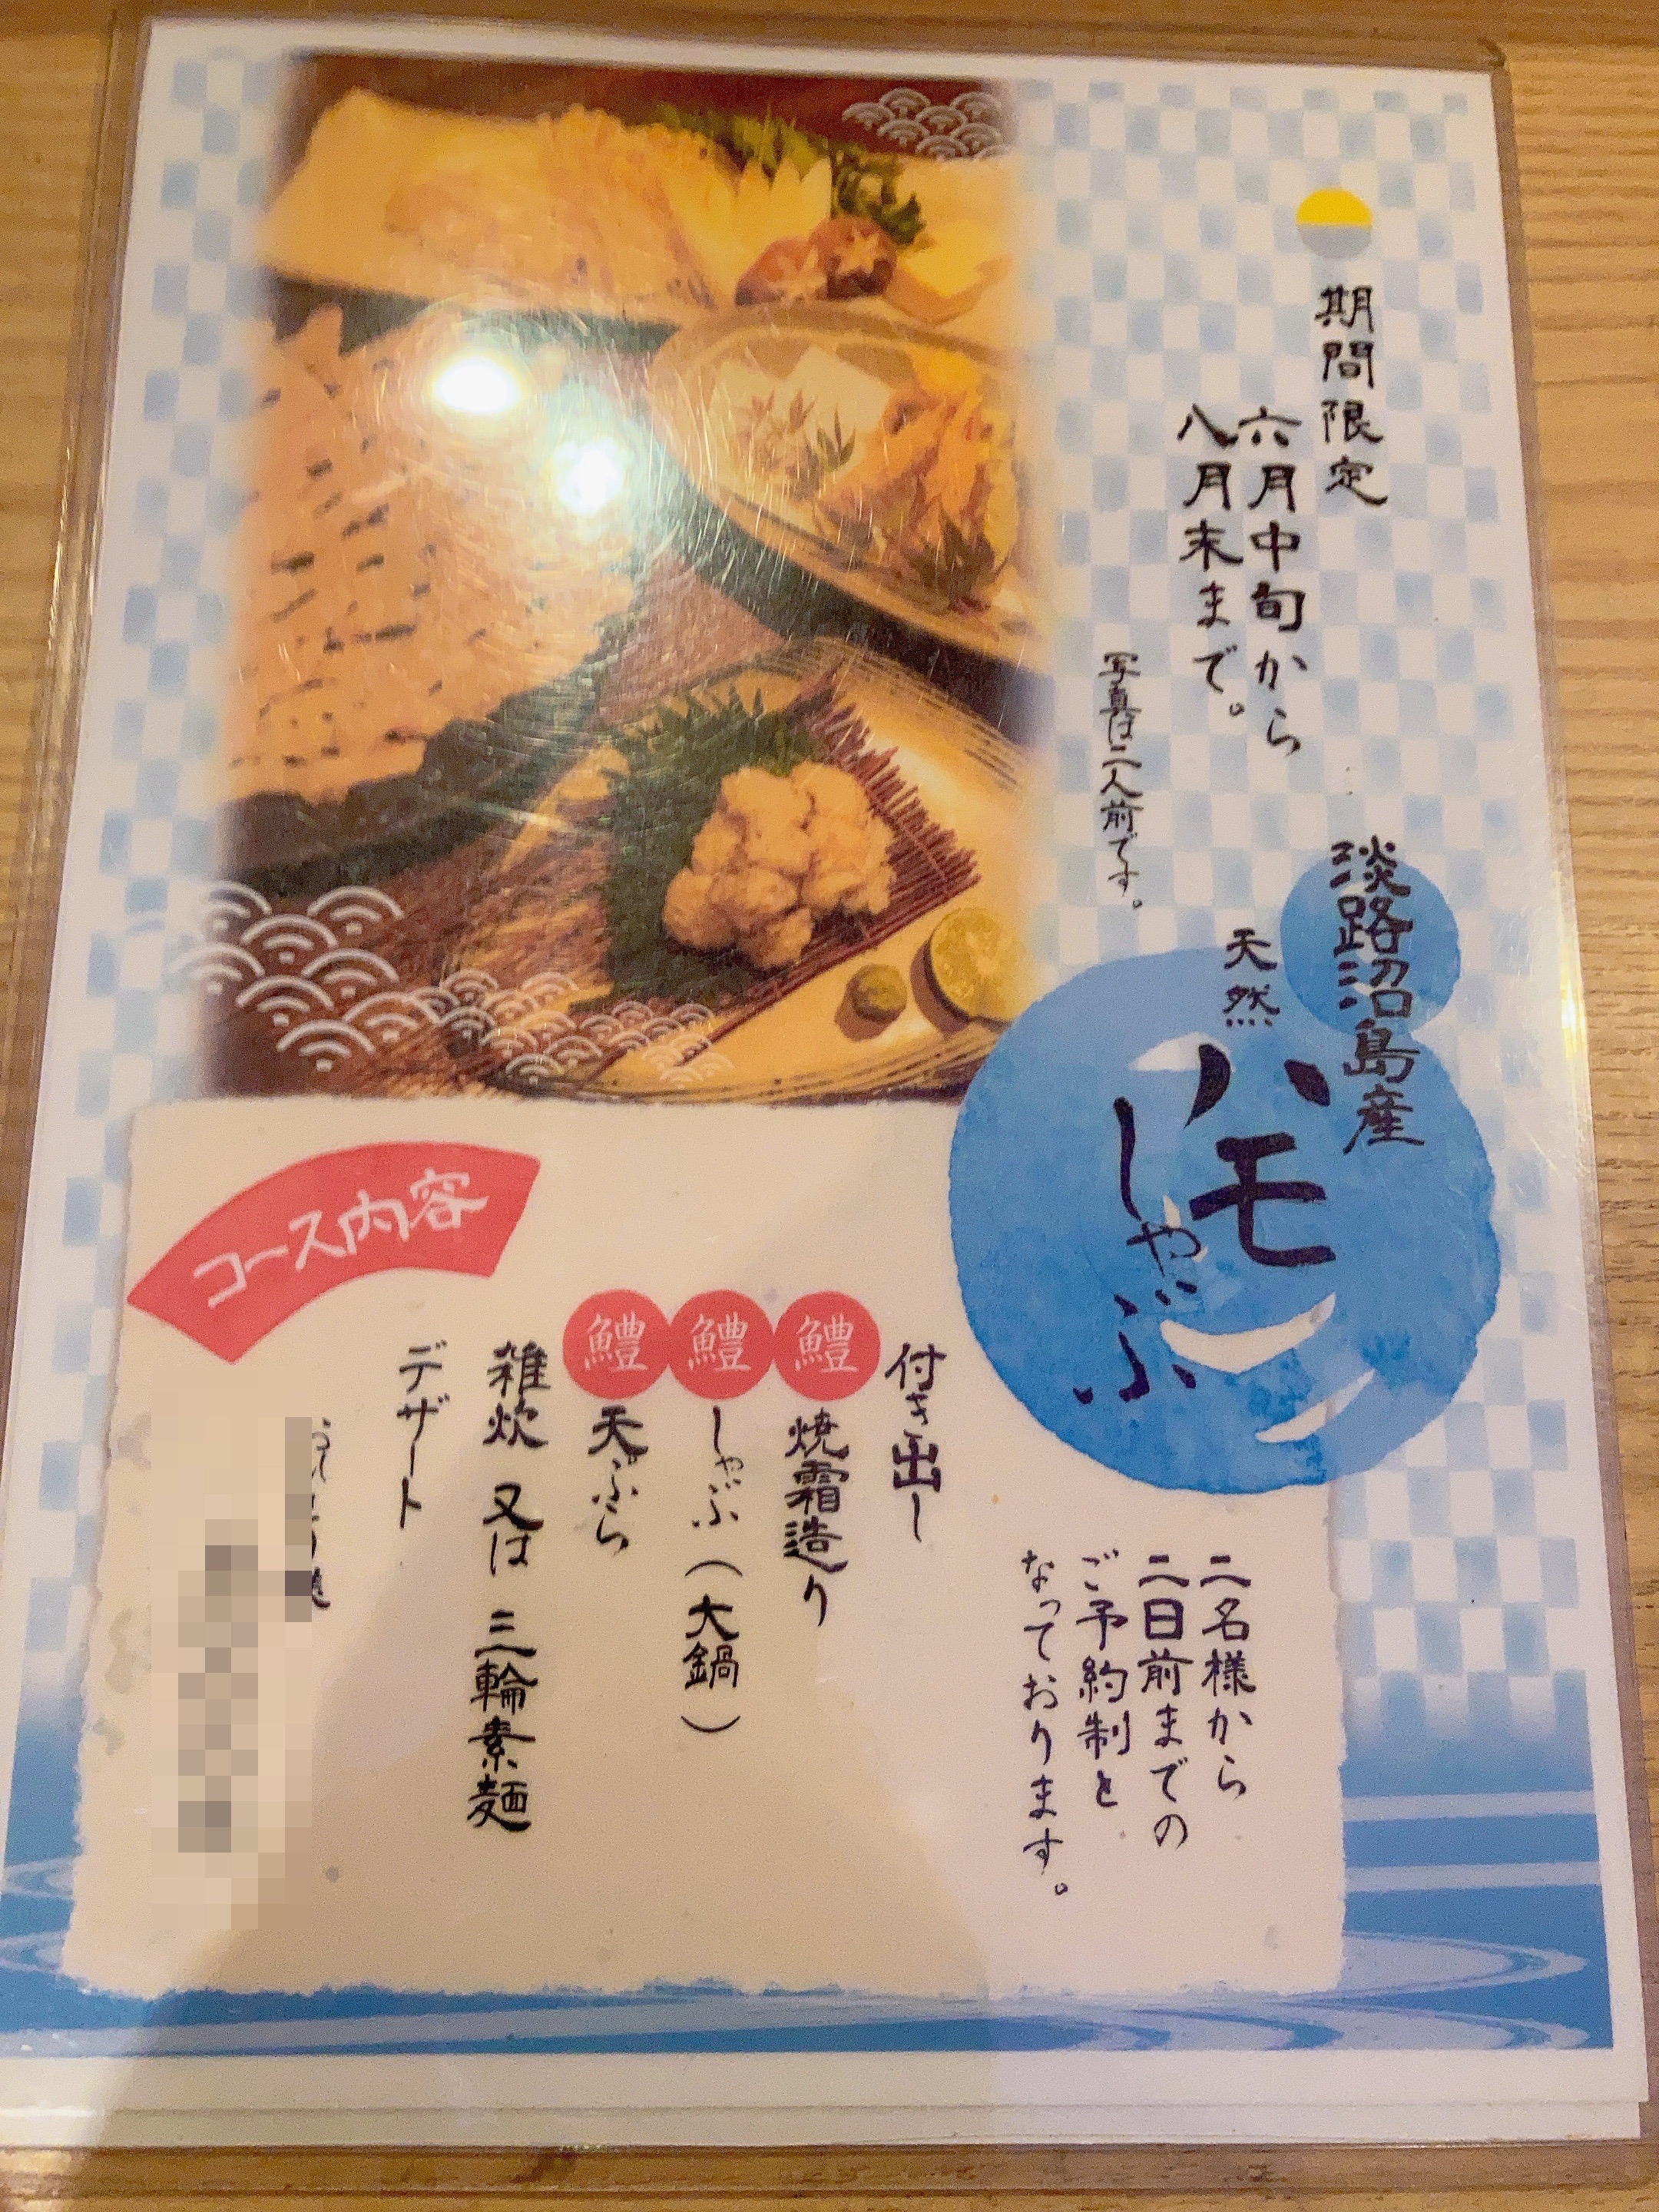 期間限定
六月中旬から
八月末まで。
写真は二人前です。
淡路沼島産
天然
ハモ
しゃぶ
二名様から
二日前までの
ご予約制と
なっております。
コース内容
付き出し
鱧焼霜造り
鱧しゃぶ（大鍋）
鱧天ぷら
雑炊 又は 三輪素麺
デザート